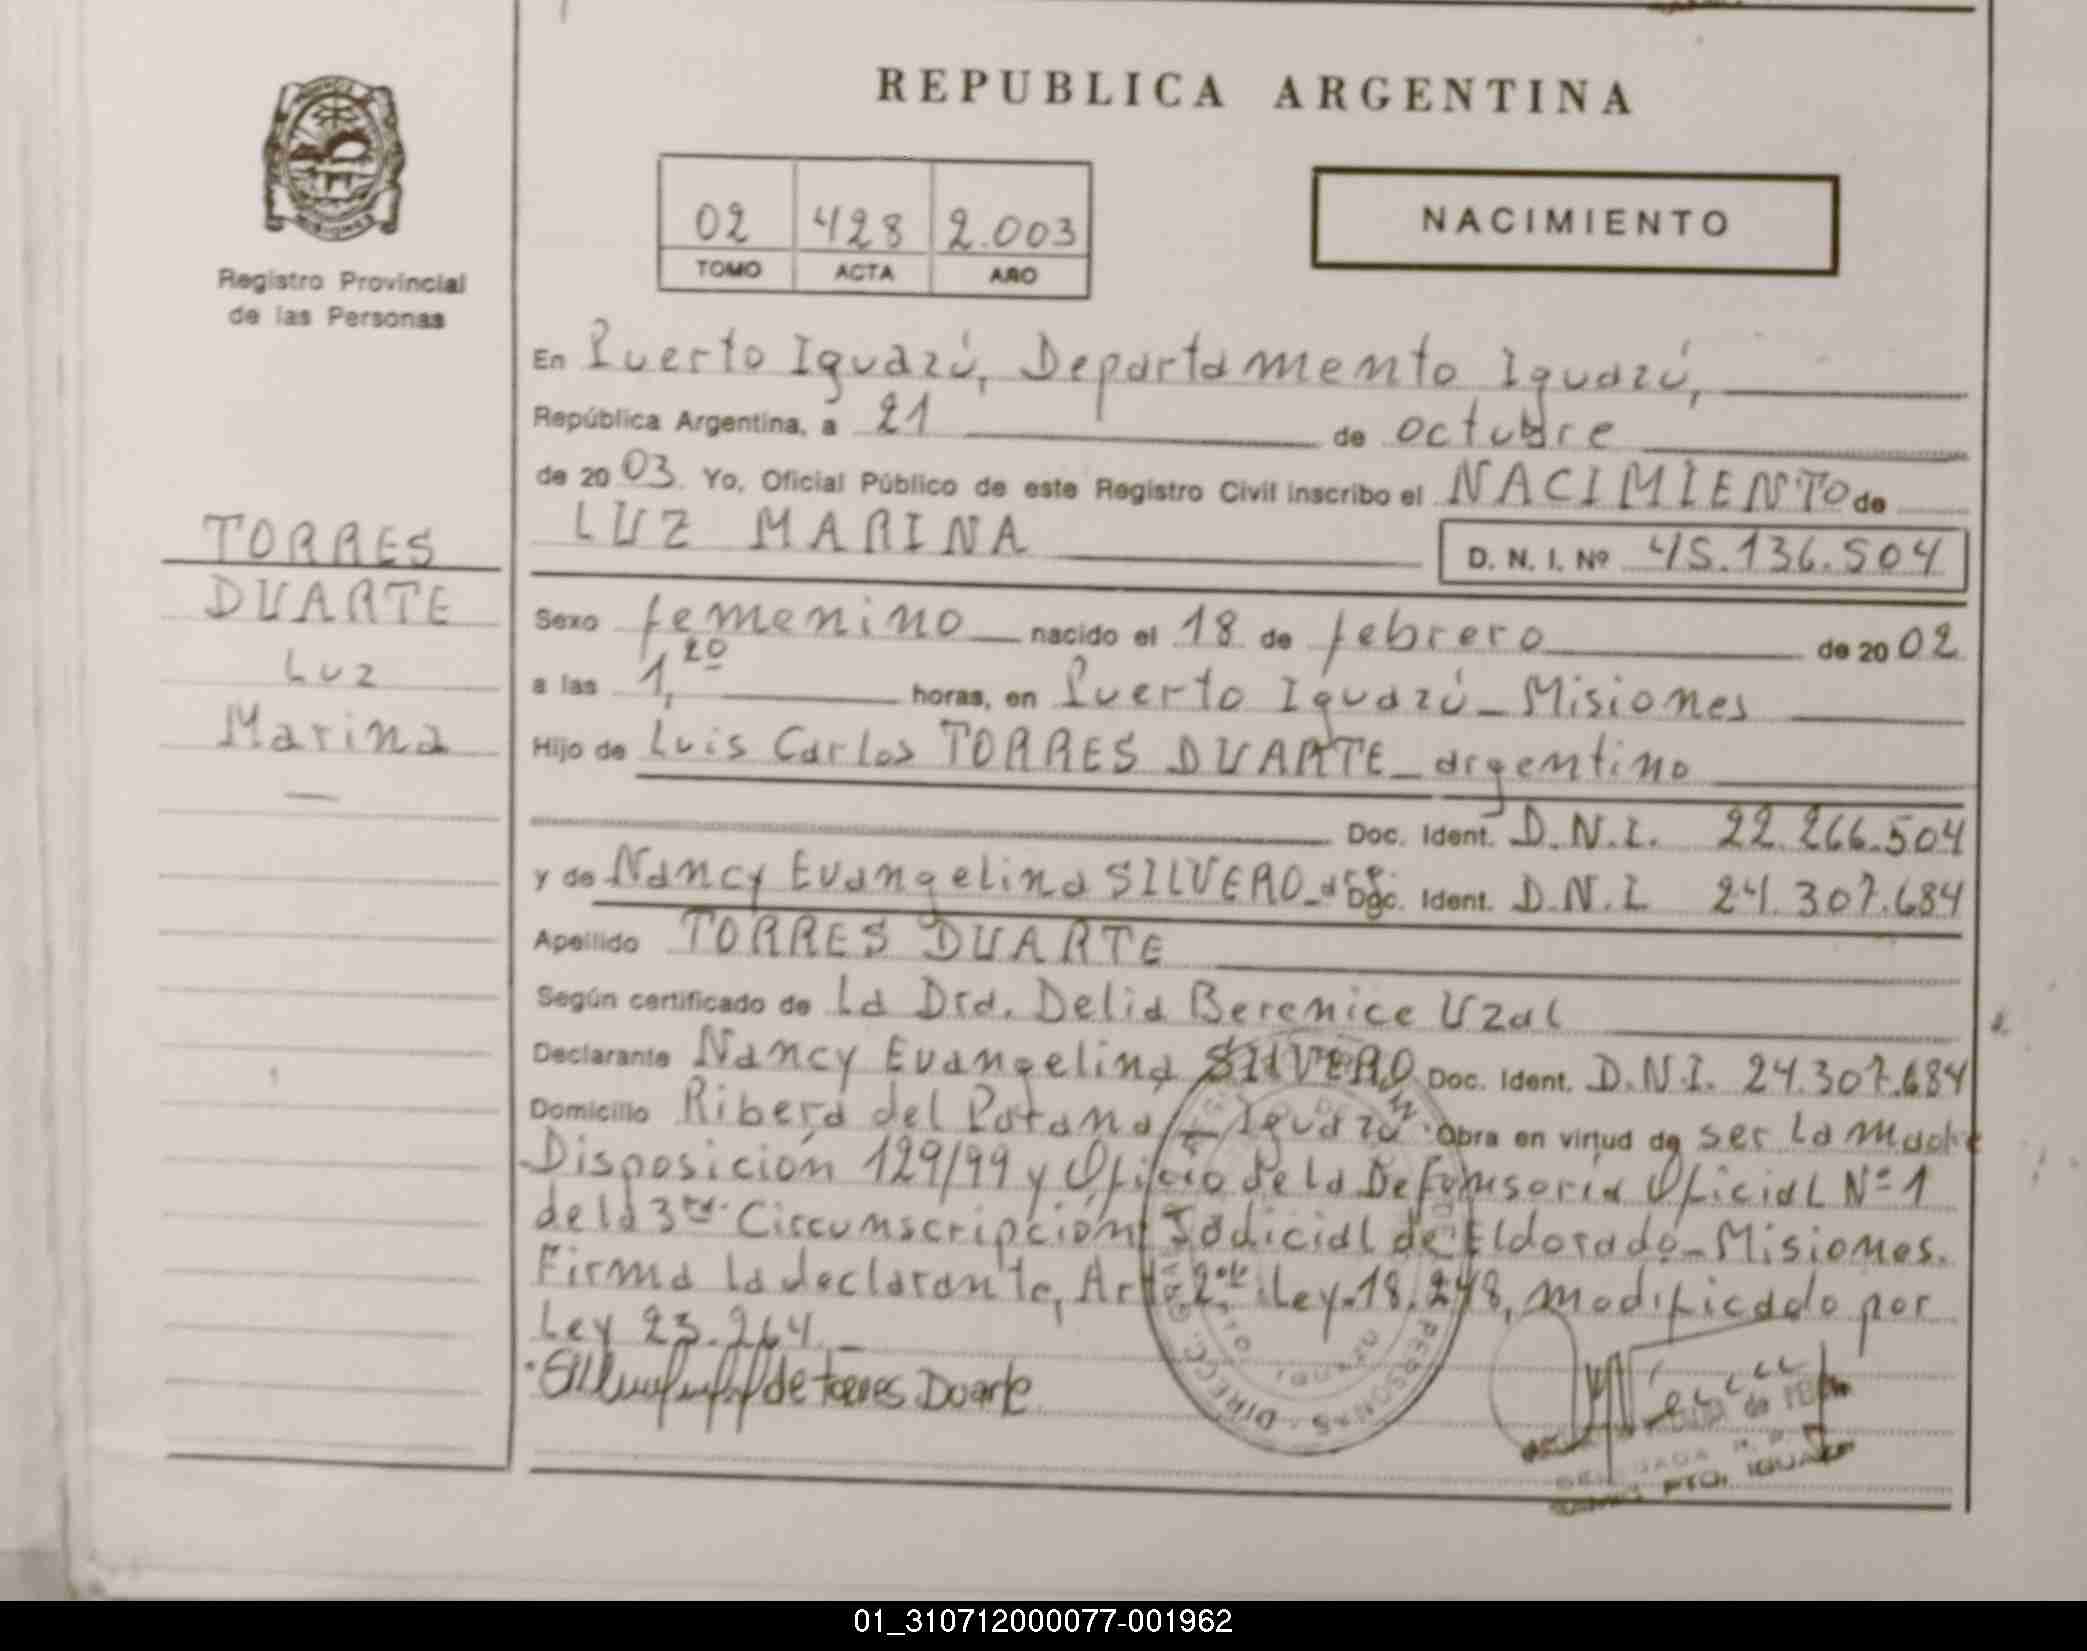 REPUBLICA ARGENTINA
02 428 2.003
TOMO ACTA AÑO
NACIMIENTO
Registro Provincial
de las Personas
TORRES
DUARTE
Luz
Marina
En Puerto Iguazú, Departamento Iguazú,
República Argentina, a 21 de octubre
de 2003. Yo, Oficial Público de este Registro Civil inscribo el NACIMIENTO de
LUZ MARINA D. N. I. Nº 45.136.504
Sexo femenino nacido el 18 de febrero de 2002
a las 1,20 horas, en Puerto Iguazú - Misiones
Hijo de Luis Carlos TORRES DUARTE - argentino
Doc. Ident. D.N.I. 22.266.504
y de Nancy Evangelina SILVERO - arg. Doc. Ident. D.N.I. 24.307.684
Apellido TORRES DUARTE
Según certificado de La Dra. Delia Berenice Uzal
Declarante Nancy Evangelina SILVERO Doc. Ident. D.N.I. 24.307.684
Domicilio Ribera del Parana - Iguazú. Obra en virtud de ser La Madre
Disposición 129/99 y Oficio de la Defensoría Oficial Nº 1
de la 3ra. Circunscripción Judicial de Eldorado - Misiones.
Firma la declarante, Art. Ley 18.248, modificado por
Ley 23.264. -
de Torres Duarte
PERSONAS - DIRECC.
PTO. IGUAZU
01_310712000077-001962